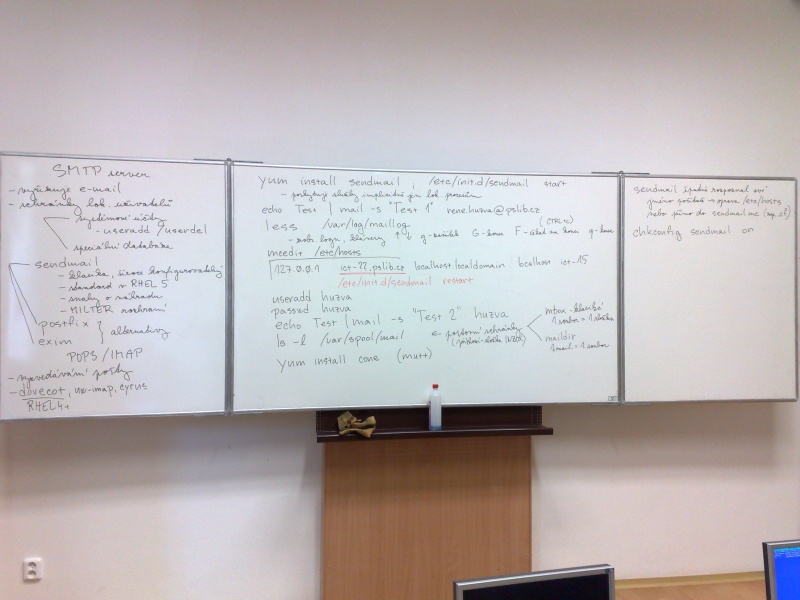 SMTP server
- vyřizuje e-mail
- schránky lok. uživatelů
systémové účty
- useradd / userdel
speciální databáze
sendmail
- klasika, široce konfigurovatelný
- standard v RHEL 5
- snahy o náhradu
- MILTER rozhraní
postfix
exim
} alternativy
POP3 / IMAP
- vyzvedávání pošty
- dovecot, uw-imap, cyrus
RHEL4+
yum install sendmail ; /etc/init.d/sendmail start
- poskytuje služby implicitně jen lok. procesům
echo Test | mail -s "Test 1" rene.huzva@pslib.cz
less /var/log/maillog (CTRL+C)
- soub. logu, klávesy ↑↓, g - začátek G - konec F - čekat na konci q - konec
mcedit /etc/hosts
127.0.0.1 ict-??.pslib.cz localhost.localdomain localhost ict-15
/etc/init.d/sendmail restart
useradd huzva
passwd huzva
echo Test | mail -s "Test 2" huzva
ls -l /var/spool/mail ← poštovní schránky
mbox - klasické
1 soubor = 1 složka
maildir
1 mail = 1 soubor
yum install cone (mutt)
sendmail špatně rozpoznal své
jméno počítače → oprava /etc/hosts
nebo přímo do sendmail.mc
chkconfig sendmail on